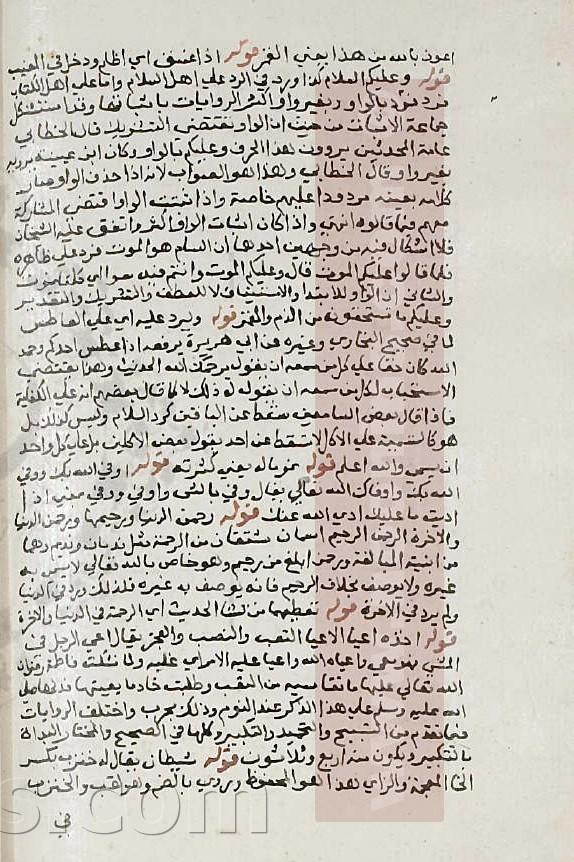 اعوذ بالله من هذا يعني القمر قوله اذا غسق اي اظلم ودخل في المغيب
قوله وعليكم السلام كذا ورد في الرد علي اهل السلام واما علي اهل الكتاب
فورد بالواو وبغير واو واكثر الروايات باثباتها وقد استشكل
جماعة الاثبات من حيث ان الواو تقتضي التشريك قال الخطابي
عامة المحدثين يروون هذا الحرف وعليكم بالواو وكان ابن عيينة يرويه
بغير واو قال الخطابي وهذا هو الصواب لانه اذا حذف الواو صار
كلامه بعينه مردودا عليهم خاصة واذا ثبتت الواو اقتضي المشاركة
معهم فيما قالوه انتهي واذا كان اثبات الواو اكثر واتفق عليه الشيخان
فلا اشكال فيه من وجهين احدهما ان السام هو الموت فرد علي ظاهره
فلما قالوا عليكم الموت قال وعليكم الموت وانتم فيه سوا اي كلنا نموت
والثاني ان الواو للابتدا والاستيناف لا للعطف والتشريك والتقدير
وعليكم ما تستحقونه من الذم قوله ويرد عليه اي علي العاطس
لما في صحيح البخاري وغيره عن ابي هريرة يرفعه اذا عطس احدكم وحمد
الله كان حقا علي كل من سمعه ان يقول يرحمك الله الحديث وهذا يقتضي
الاستحباب لكل من سمعه ان يقول له ذلك لا كما قال بعضهم انه علي الكفاية
فاذا قال بعض السامعين سقط عن الباقين كرد السلام وليس كذلك بل
هو كالتسمية علي الاكل لا تسقط عن احد بقول بعض الاكلين بل علي كل واحد
ان يسمي والله اعلم قوله من ماله يعني كثرته قوله اوفي الله بك ووفي
الله بك واوفاك الله تعالي يقال وفي بالشي واوفي ووفي بمعني اذا
اديت ما عليك ادي الله عنك قوله رحمن الدنيا ورحيمها ورحمن الدنيا
والاخرة الرحمن الرحيم اسمان مشتقان من الرحمة مثل ندمان ونديم وهما
من ابنية المبالغة ورحمن ابلغ من رحيم وهو خاص بالله تعالي لا يسمي به
غيره ولا يوصف بخلاف الرحيم فانه يوصف به غيره فلذلك ورد في الدنيا
ولم يرد في الاخرة قوله تعطيهما من تشا الحديث اي الرحمة في الدنيا والاخرة
قوله اخذه اعيا الاعيا التعب والنصب والعجز يقال اعي الرجل في
المشي فهو معي واعياه الله واعيا عليه الامر اي عليه ولما شكت فاطمة رضوان
الله تعالي عليها ما تقاسيه من التعب وطلبت خادما يعينها دلها صلي
الله عليه وسلم علي هذا الذكر عند النوم وذلك مجرب واختلف الروايات
فيما تقدم من التسبيح والتحميد والتكبير وكلها في الصحيح والمختار البداة
بالتكبير ويكون منه اربع وثلاثون قوله شيطان يقال له خنزب بكسر
الخا المعجمة والزاي هذا هو المحفوظ وروي بالضم وهو لقب والخنزب
في